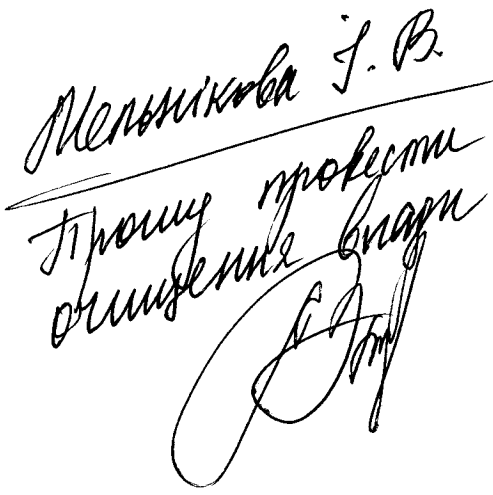 Мельнікова І. В.
Прошу провести
очищення влади